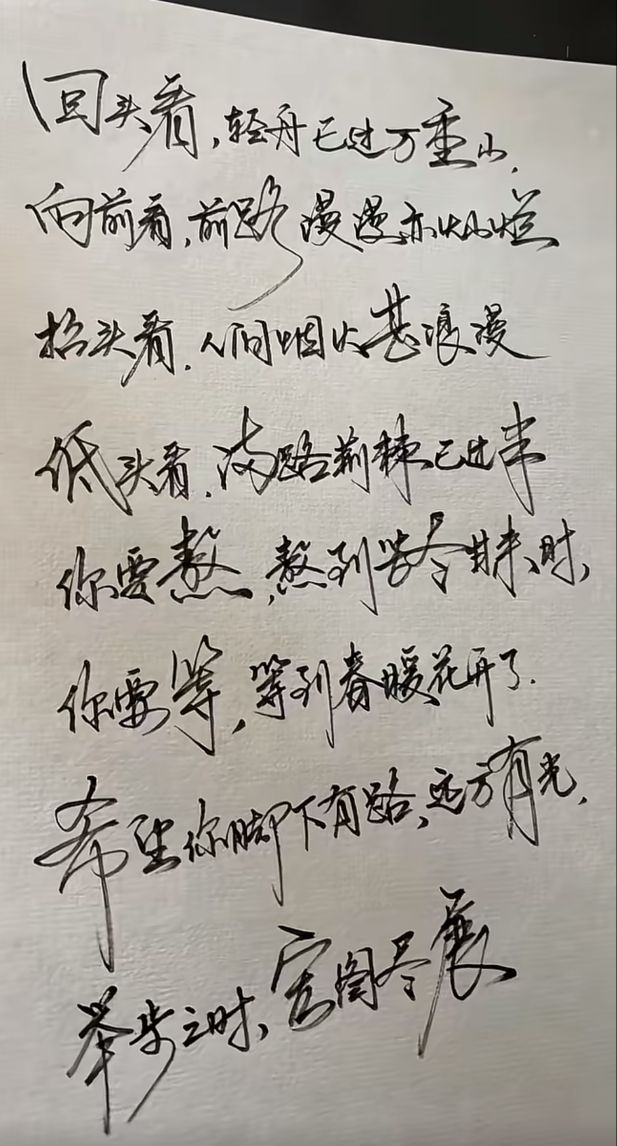 回头看,轻舟已过万重山,
向前看,前路漫漫亦灿烂
抬头看,人间烟火甚浪漫
低头看,满路荆棘已过半
你要熬,熬到苦尽甘来时,
你要等,等到春暖花开了.
希望你脚下有路,远方有光,
举步之时,宏图尽展